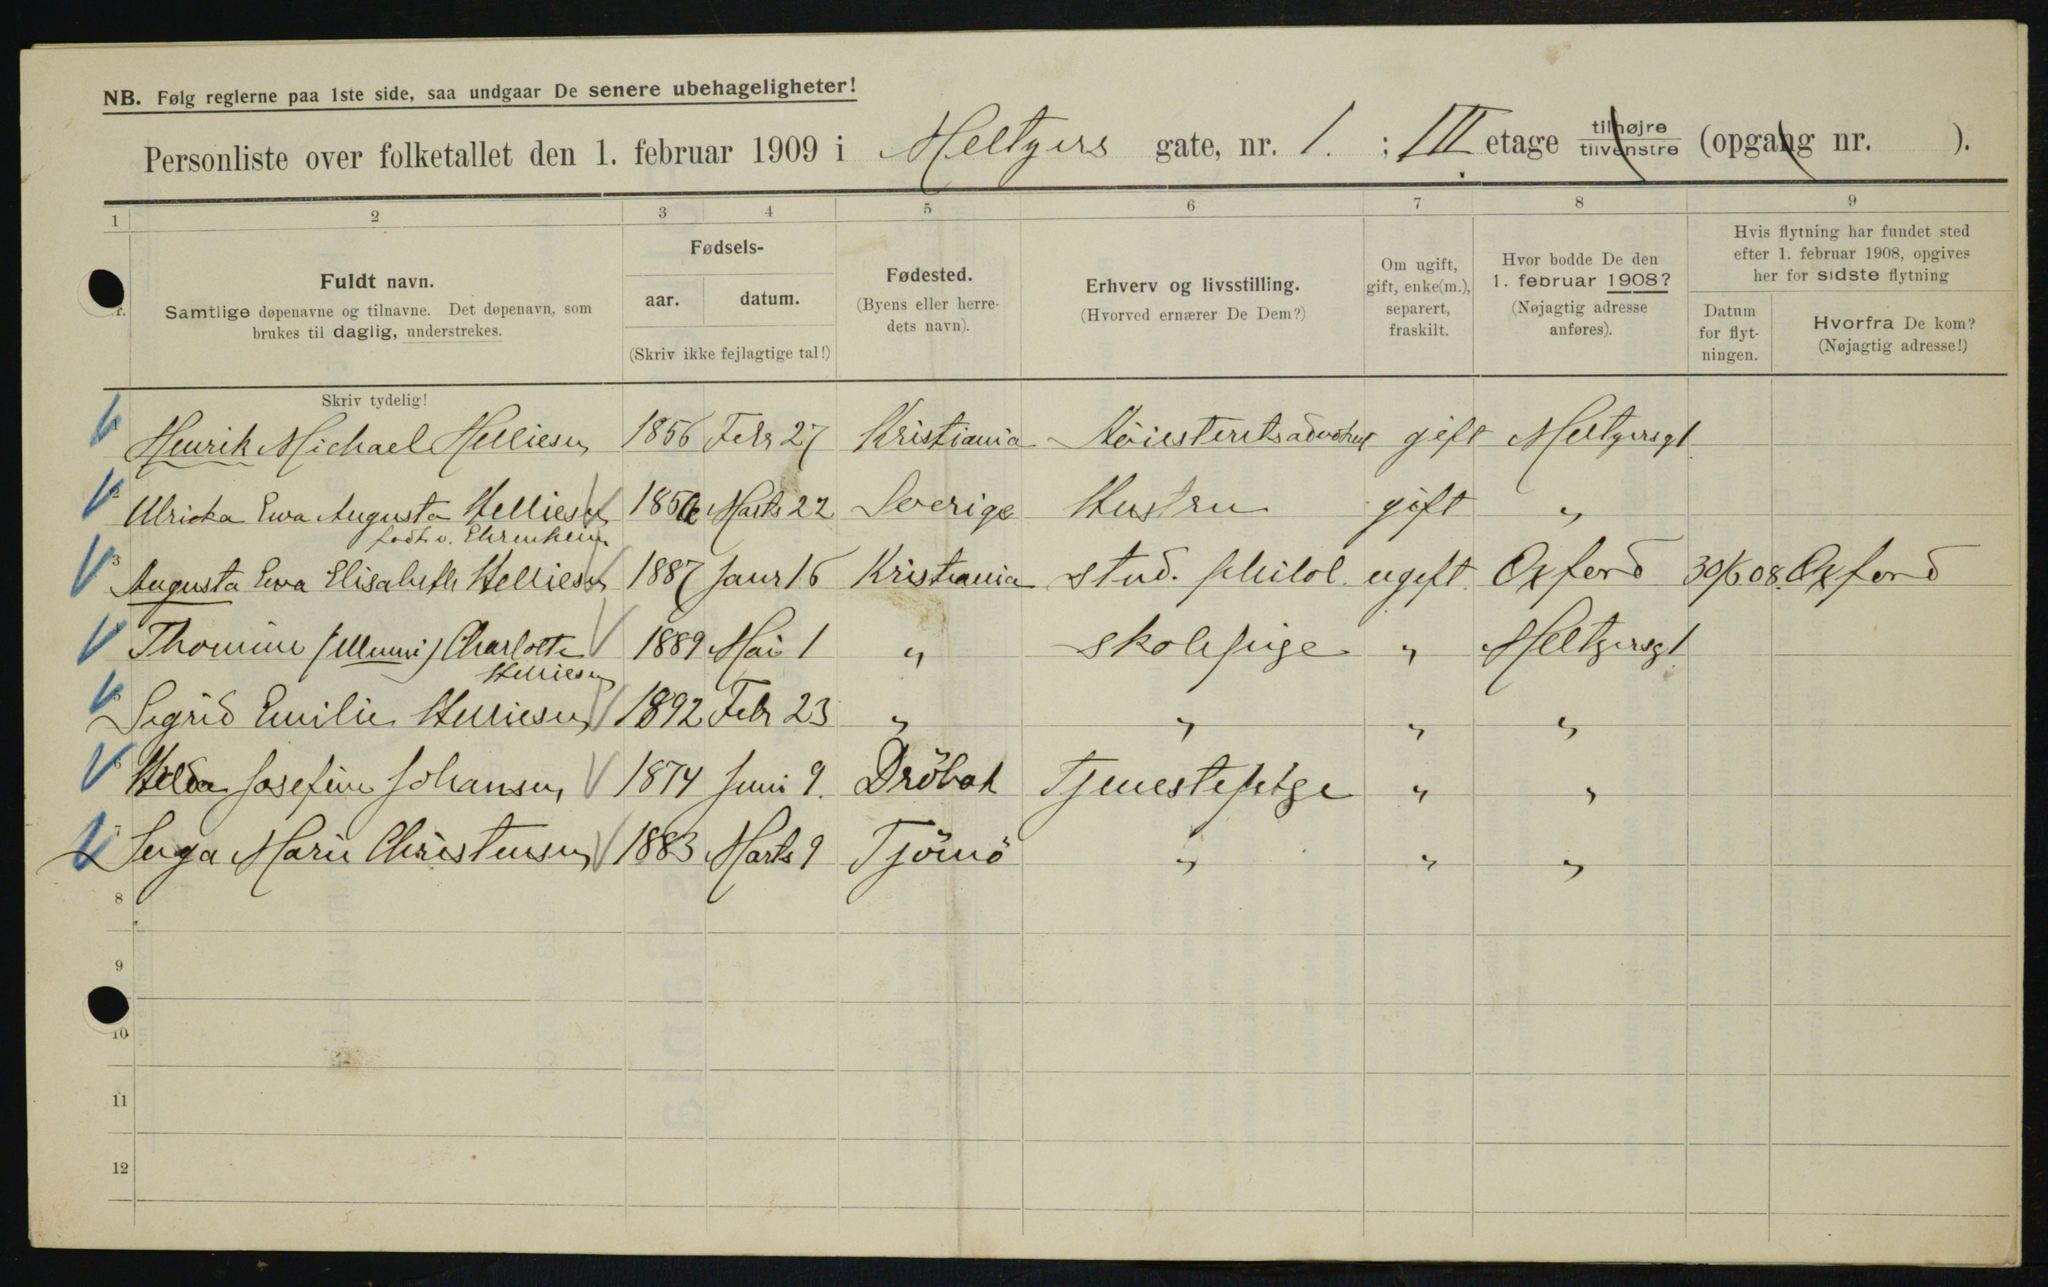 NB. Følg reglerne paa 1ste side, saa undgaar De senere ubehageligheter!
Personliste over folketallet den 1. februar 1909 i Meltzers gate, nr. 1. ; III etage tilhøjre tilvenstre (opgang nr. ).
1 2 3 4 5 6 7 8 9
Fuldt navn.
Samtlige døpenavne og tilnavne. Det døpenavn, som
brukes til daglig, understrekes.
Fødsels-
aar. datum.
(Skriv ikke fejlagtige tal!)
Fødested.
(Byens eller herre-
dets navn).
Erhverv og livsstilling.
(Hvorved ernærer De Dem?)
Om ugift,
gift, enke(m.),
separert,
fraskilt.
Hvor bodde De den
1. februar 1908?
(Nøjagtig adresse
anføres).
Hvis flytning har fundet sted
efter 1. februar 1908, opgives
her for sidste flytning
Datum
for flyt-
ningen.
Hvorfra De kom?
(Nøjagtig adresse!)
Skriv tydelig!
Henrik Michael Helliesen 1856 Febr 27 Kristiania Høiesteretsadvokat gift Meltzersgt 1
2 Ulricka Ewa Augusta Helliesen 1856 Marts 22 Sverige Hustru gift "
født v. Ehrenheim
3 Augusta Ewa Elisabeth Helliesen 1887 Januar 16 Kristiania stud. philol. ugift Oxford 30/6 08. Oxford
Thomine (Mumi) Charlotte 1889 Mai 1 " Skolepige " Meltzersgt 1
Helliesen
Sigrid Emilie Helliesen 1892 Febr 23 " " " "
6 Hilda Josefine Johansen 1874 Juni 9. Dröbak Tjenestepige " "
7 Inga Marie Christensen 1883 Marts 9 Tjömö " " "
8
9
10
11
12